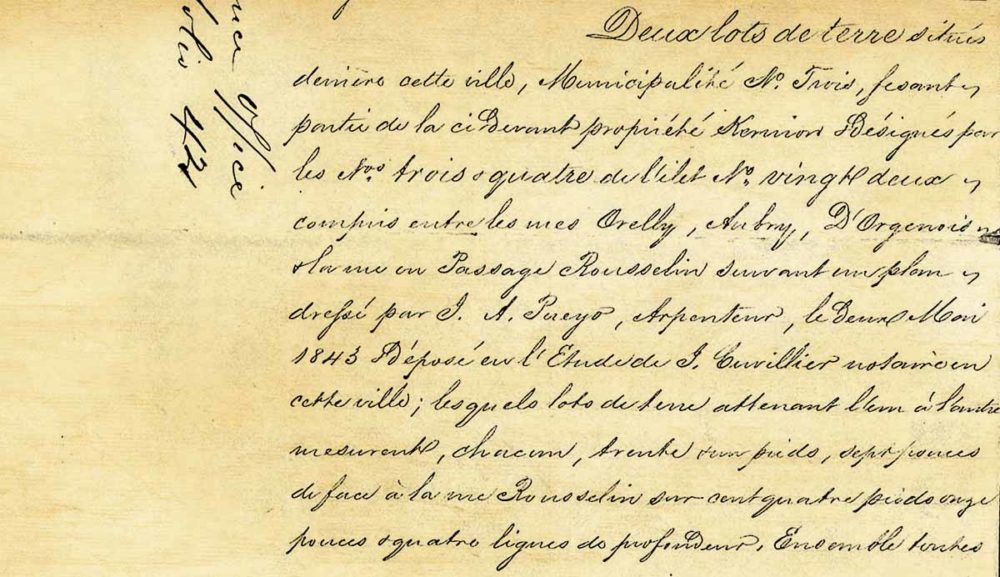 Deux lots de terre situés
derrière cette ville, Municipalité No. Trois, fesant
partie de la ci Devant propriété Kernion Désignés par
les Nos. trois & quatre de l'ilet No. vingt deux
compris entre les rues Orelly, Aubry, D'Orgenois
& la rue ou Passage Rousselin suivant un plan
dressé par J. A. Pueyo, Arpenteur, le deux Mai
1843 Déposé en l'Etude de J. Cuvillier notaire en
cette ville; lesquels lots de terre attenant l'un à l'autre
mesurent, chacun, trente & un pieds, sept pouces
de face à la rue Rousselin sur cent quatre pieds onze
pouces & quatre lignes de profondeur. Ensemble toutes
office
olio 42